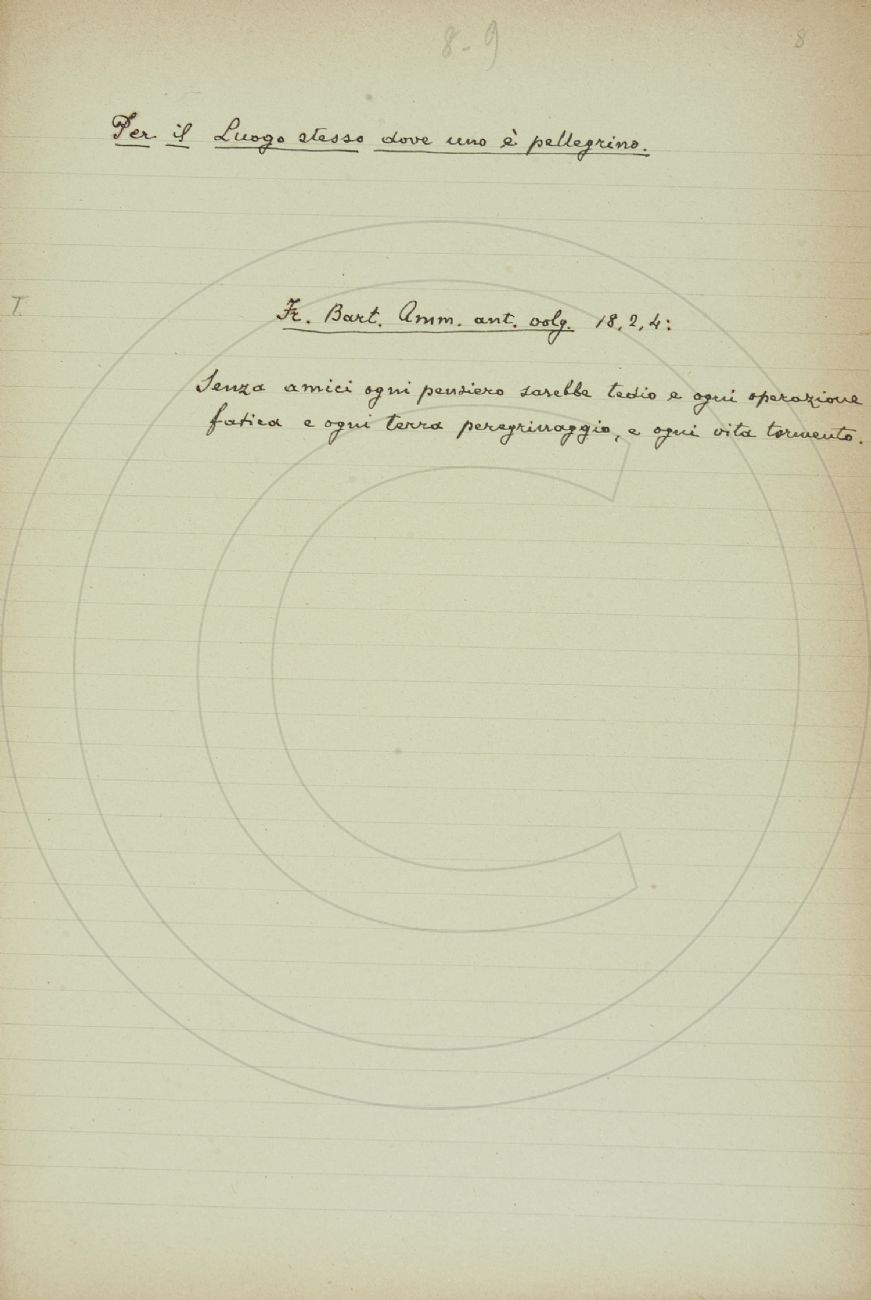 8-9 8
Per il Luogo stesso dove uno è pellegrino.
T.
Fr. Bart. Amm. ant. volg. 18, 2, 4:
Senza amici ogni pensiero sarebbe tedio e ogni operazione
fatica e ogni terra peregrinaggio, e ogni vita tormento.